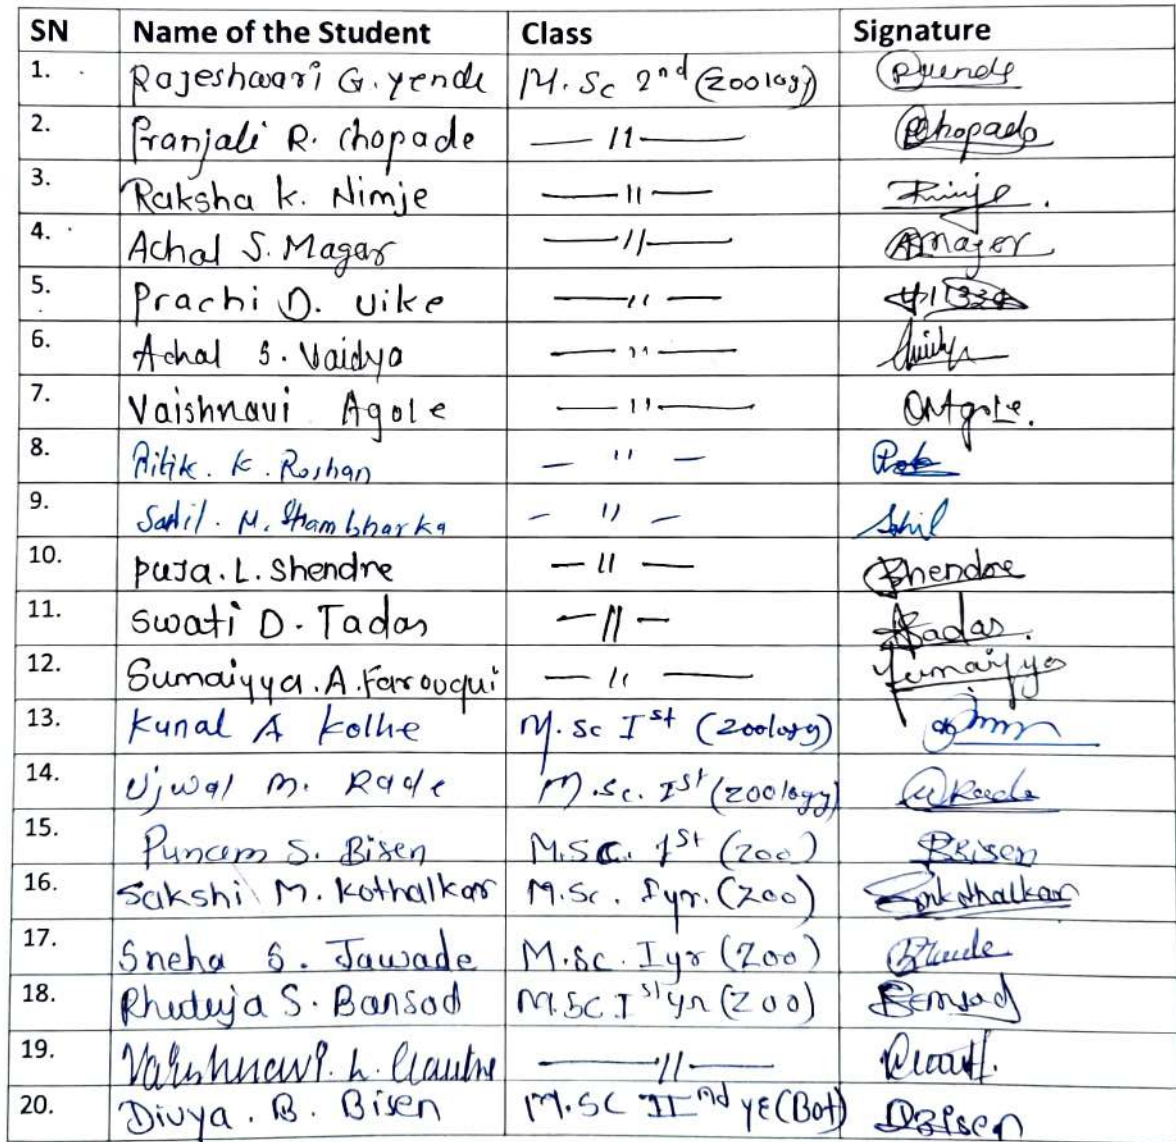 SN Name of the Student Class Signature
1. Rajeshwari G. Yende M.Sc 2nd (Zoology)
2. Pranjali R. Chopade —11— Chopade
3. Raksha K. Nimje —11—
4. Achal S. Magar —11— AMager
5. Prachi D. Uike —11—
6. Achal S. Vaidya —11—
7. Vaishnavi Agole —11—
8. Ritik. K. Roshan — 11 —
9. Sahil. M. Shambharka — 11 — Sahil
10. Puja. L. Shendre — 11 — Shendre
11. Swati D. Tadas —11—
12. Sumaiyya. A. Farouqui —11— Sumaiyya
13. Kunal A Kolhe M.Sc Ist (Zoology)
14. Ujwal M. Rade M.Sc. Ist (Zoology)
15. Punam S. Bisen M.SC. 1st (Zoo) Bisen
16. Sakshi M. Kothalkar M.Sc. Iyr. (Zoo)
17. Sneha S. Jawade M.Sc. Iyr (Zoo)
18. Rhutuja S. Bansod M.SC Ist yr (Zoo) Bansod
19. —11—
20. Divya. B. Bisen M.SC IInd ye (Bot) DBisen